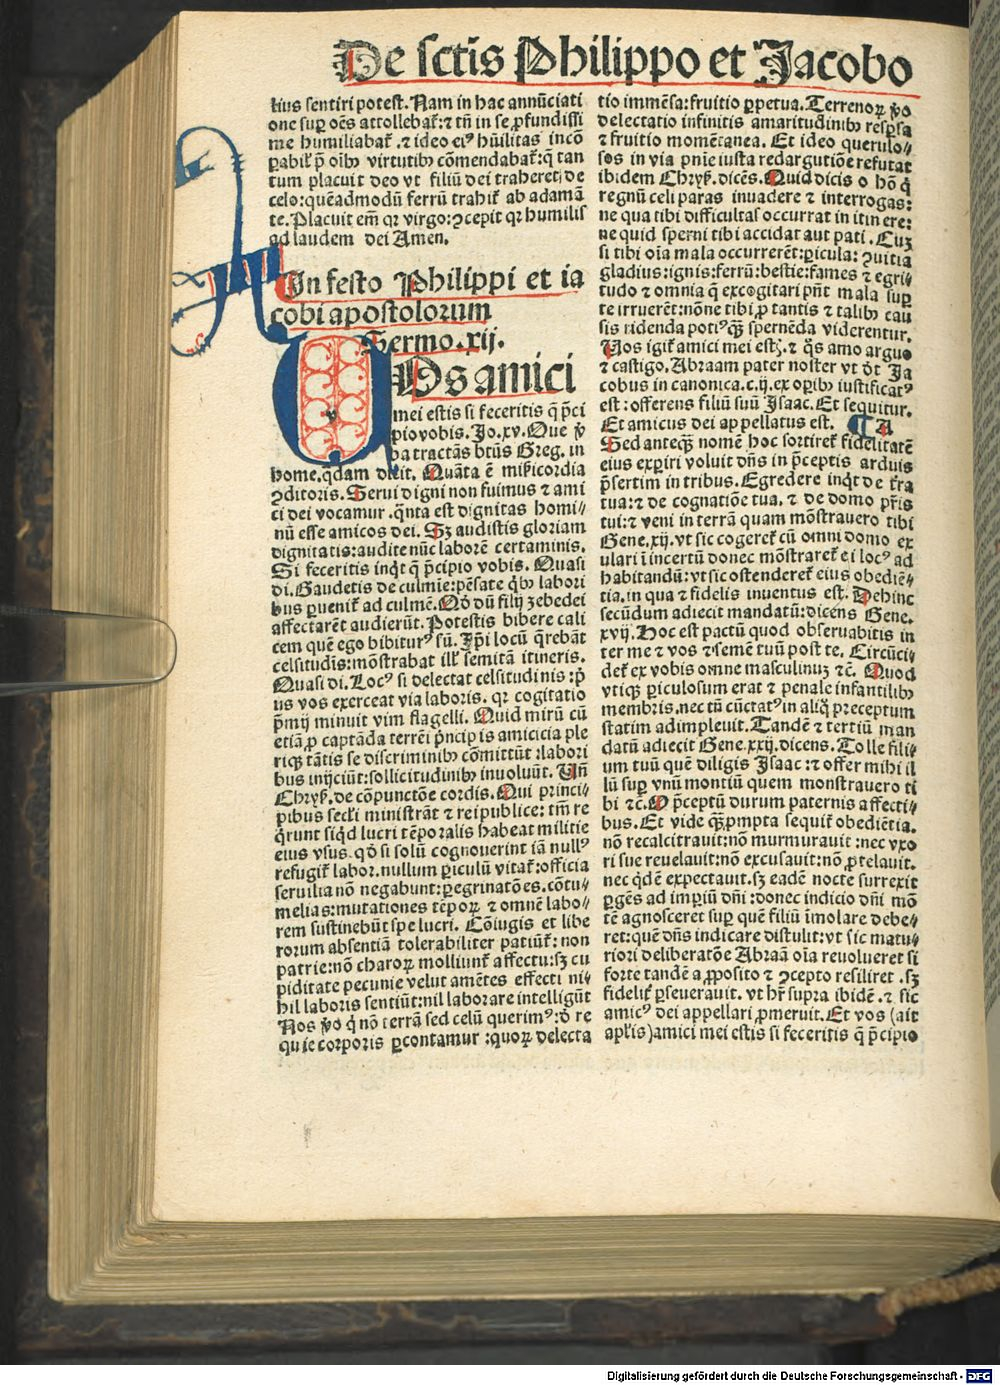 De sctis Philippo et Jacobo
tius sentiri potest. Nam in hac annūciati
one suꝑ oēs attollebat᷑: ⁊ tn̄ in se ꝓfundissi
me humiliabat᷑. ⁊ ideo eiꝰ hūilitas incō
ꝑabilr̄ p̄ oībꝰ virtutibꝰ cōmendabat᷑: q̄ tan
tum placuit deo vt filiū dei traheret de
celo: quēadmodū ferrū trahit᷑ ab adamā
te. Placuit em̄ qꝛ virgo: ꝯcepit qꝛ humilis
ad laudem dei Amen.
In festo Philippi et ia
cobi apostolorum
Sermo. xij.
UOs amici
mei estis si feceritis q̄ p̄ci
pio vobis. Jo. xv. Que v̄
ba tractās btūs Greg. in
home. q̄dam dicit. Quāta ē mīs̄icordia
ꝯditoris. Serui digni non fuimus ⁊ ami
ci dei vocamur. q̄nta est dignitas homi⸗
nū esse amicos dei. Sꝫ audistis gloriam
dignitatis: audite nūc laborē certaminis.
Si feceritis inq̇t q̄ p̄cipio vobis. Quasi
di. Gaudetis de culmīe: pēsate q̇bꝰ labori
bus ꝑuenit᷑ ad culmē. Nō dū filij zebedei
affectarēt audierūt. Potestis bibere cali
cem quē ego bibiturꝰ sū. Ip̄i locū q̄rebāt
celsitudīs: mōstrabat ill᷑ semitā itineris.
Quasi di. Locꝰ si delectat celsitudinis: p̄
us vos exerceat via laboris. qꝛ cogitatio
p̄mij minuit vim flagelli. Quid mirū cū
etiā ꝓ captāda terrēi p̄ncipis amicicia ple
riqꝫ tātis se discriminibꝰ cōmittūt: labori
bus inijciūt: sollicitudinibꝰ inuoluūt. Uñ
Chryẜ. de cōpunctōe cordis. Qui princi⸗
pibus secl̄i ministrāt ⁊ reipublice: tm̄ re
q̇runt siq̇d lucri tēporalis habeat militie
eius vsus. qd̄ si solū cognouerint iā nullꝰ
refugit᷑ labor. nullum ꝑiculū vitat᷑: officia
seruilia nō negabunt: ꝑegrinatōes. cōtu⸗
melias: mutationes tēpoꝝ ⁊ omnē labo⸗
rem sustinebūt spe lucri. Cōiugis et libe
rorum absentiā tolerabiliter patiūt᷑: non
patrie: nō charoꝝ molliunt᷑ affectu: sꝫ cu
piditate pecunie velut amētes effecti ni⸗
hil laboris sentiūt: nil laborare intelligūt
Nos v̄o q̇ nō terrā sed celū querimꝰ: d̄ re
quie corporis ꝑcontamur: quoꝝ delecta
tio immēsa: fruitio ꝑpetua. Terrenoꝝ v̄o
delectatio infinitis amaritudinibꝰ resꝑsa
⁊ fruitio momētanea. Et ideo querulo⸗
sos in via pn̄ie iusta redargutiōe refutat
ibidem Chryẜ. dicēs. Quid dicis o hō q̇
regnū celi paras inuadere ⁊ interrogas:
ne qua tibi difficultas occurrat in itinere:
ne quid sperni tibi accidat aut pati. Cuꝫ
si tibi oīa mala occurrerēt: ꝑicula: ꝯuitia
gladius: ignis: ferrū: bestie: fames ⁊ egri⸗
tudo ⁊ omnia q̄ excogitari pn̄t mala suꝑ
te irruerēt: nōne tibi ꝓ tantis ⁊ talibꝰ cau
sis ridenda potiꝰqꝫ̄ spernēda viderentur.
Uos igit᷑ amici mei estꝭ. ⁊ q̊s amo arguo
⁊ castigo. Abraam pater noster vt dt̄ Ja
cobus in canonica. c. ij. ex oꝑibꝰ iustificatꝰ
est: offerens filiū suū Isaac. Et sequitur.
Et amicus dei appellatus est. ¶ A
Sed anteqꝫ̄ nomē hoc sortiret᷑ fidelitatē
eius exꝑiri voluit dn̄s in p̄ceptis arduis
p̄sertim in tribus. Egredere inq̇t de t̄ra
tua: ⁊ de cognatiōe tua. ⁊ de domo pr̄is
tui: ⁊ veni in terrā quam mōstrauero tibi
Gene. xij. vt sic cogeret᷑ cū omni domo ex
ulari ī incertū donec mōstraret᷑ ei locꝰ ad
habitandū: vt sic ostenderet᷑ eius obediē⸗
tia. in qua ⁊ fidelis inuentus est. Dehinc
secūdum adiecit mandatū: dicens Gene.
xvij. Hoc est pactū quod obseruabitis in
ter me ⁊ vos ⁊ semē tuū post te. Circūci⸗
det᷑ ex vobis omne masculinuꝫ ⁊c̄. Quod
vtiqꝫ ꝑiculosum erat ⁊ penale infantilibꝰ
membris. nec tn̄ cūctatꝰ in aliq̊ preceptum
statim adimpleuit. Tandē ⁊ tertiū man
datū adiecit Gene. xxij. dicens. Tolle fili⸗
um tuū quē diligis Isaac: ⁊ offer mihi il
lū suꝑ vnū montiū quem monstrauero ti
bi ⁊c̄. O p̄ceptū durum paternis affecti⸗
bus. Et vide qꝫ̄ ꝓmpta sequit᷑ obediētia.
nō recalcitrauit: nō murmurauit: nec vxo
ri sue reuelauit: nō excusauit: nō ꝓtelauit.
nec q̇dē expectauit. sꝫ eadē nocte surrexit
ꝑgēs ad imꝑiū dn̄i: donec indicio dn̄i mō
tē agnosceret suꝑ quē filiū īmolare debe⸗
ret: quē dn̄s indicare distulit: vt sic matu⸗
riori deliberatōe Abraā oīa reuolueret si
forte tandē a ꝓposito ⁊ ꝯcepto resiliret. sꝫ
fidelit᷑ ꝑseuerauit. vt hr̄ supra ibidē. ⁊ sic
amicꝰ dei appellari ꝓmeruit. Et vos (ait
apl̄is) amici mei estis si feceritis q̄ p̄cipio
Digitalisierung gefördert durch die Deutsche Forschungsgemeinschaft - DFG